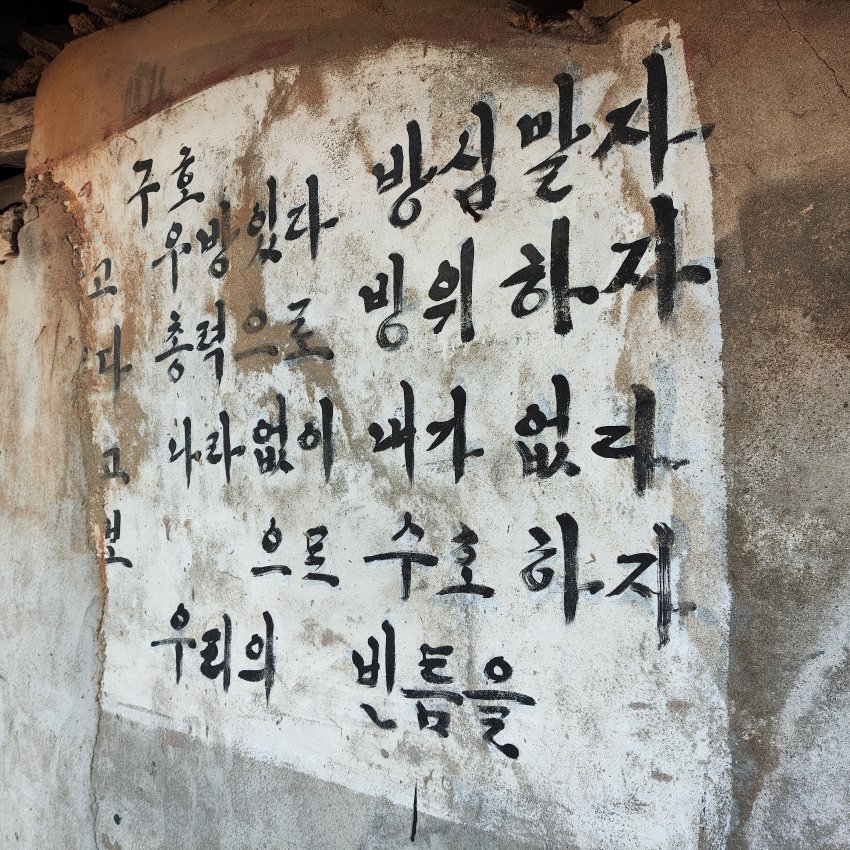 구호
우방있다 방심말자
총력으로 방위하자
나라없이 내가 없다
으로 수호하자
우리의 빈틈을
고
다
고
보